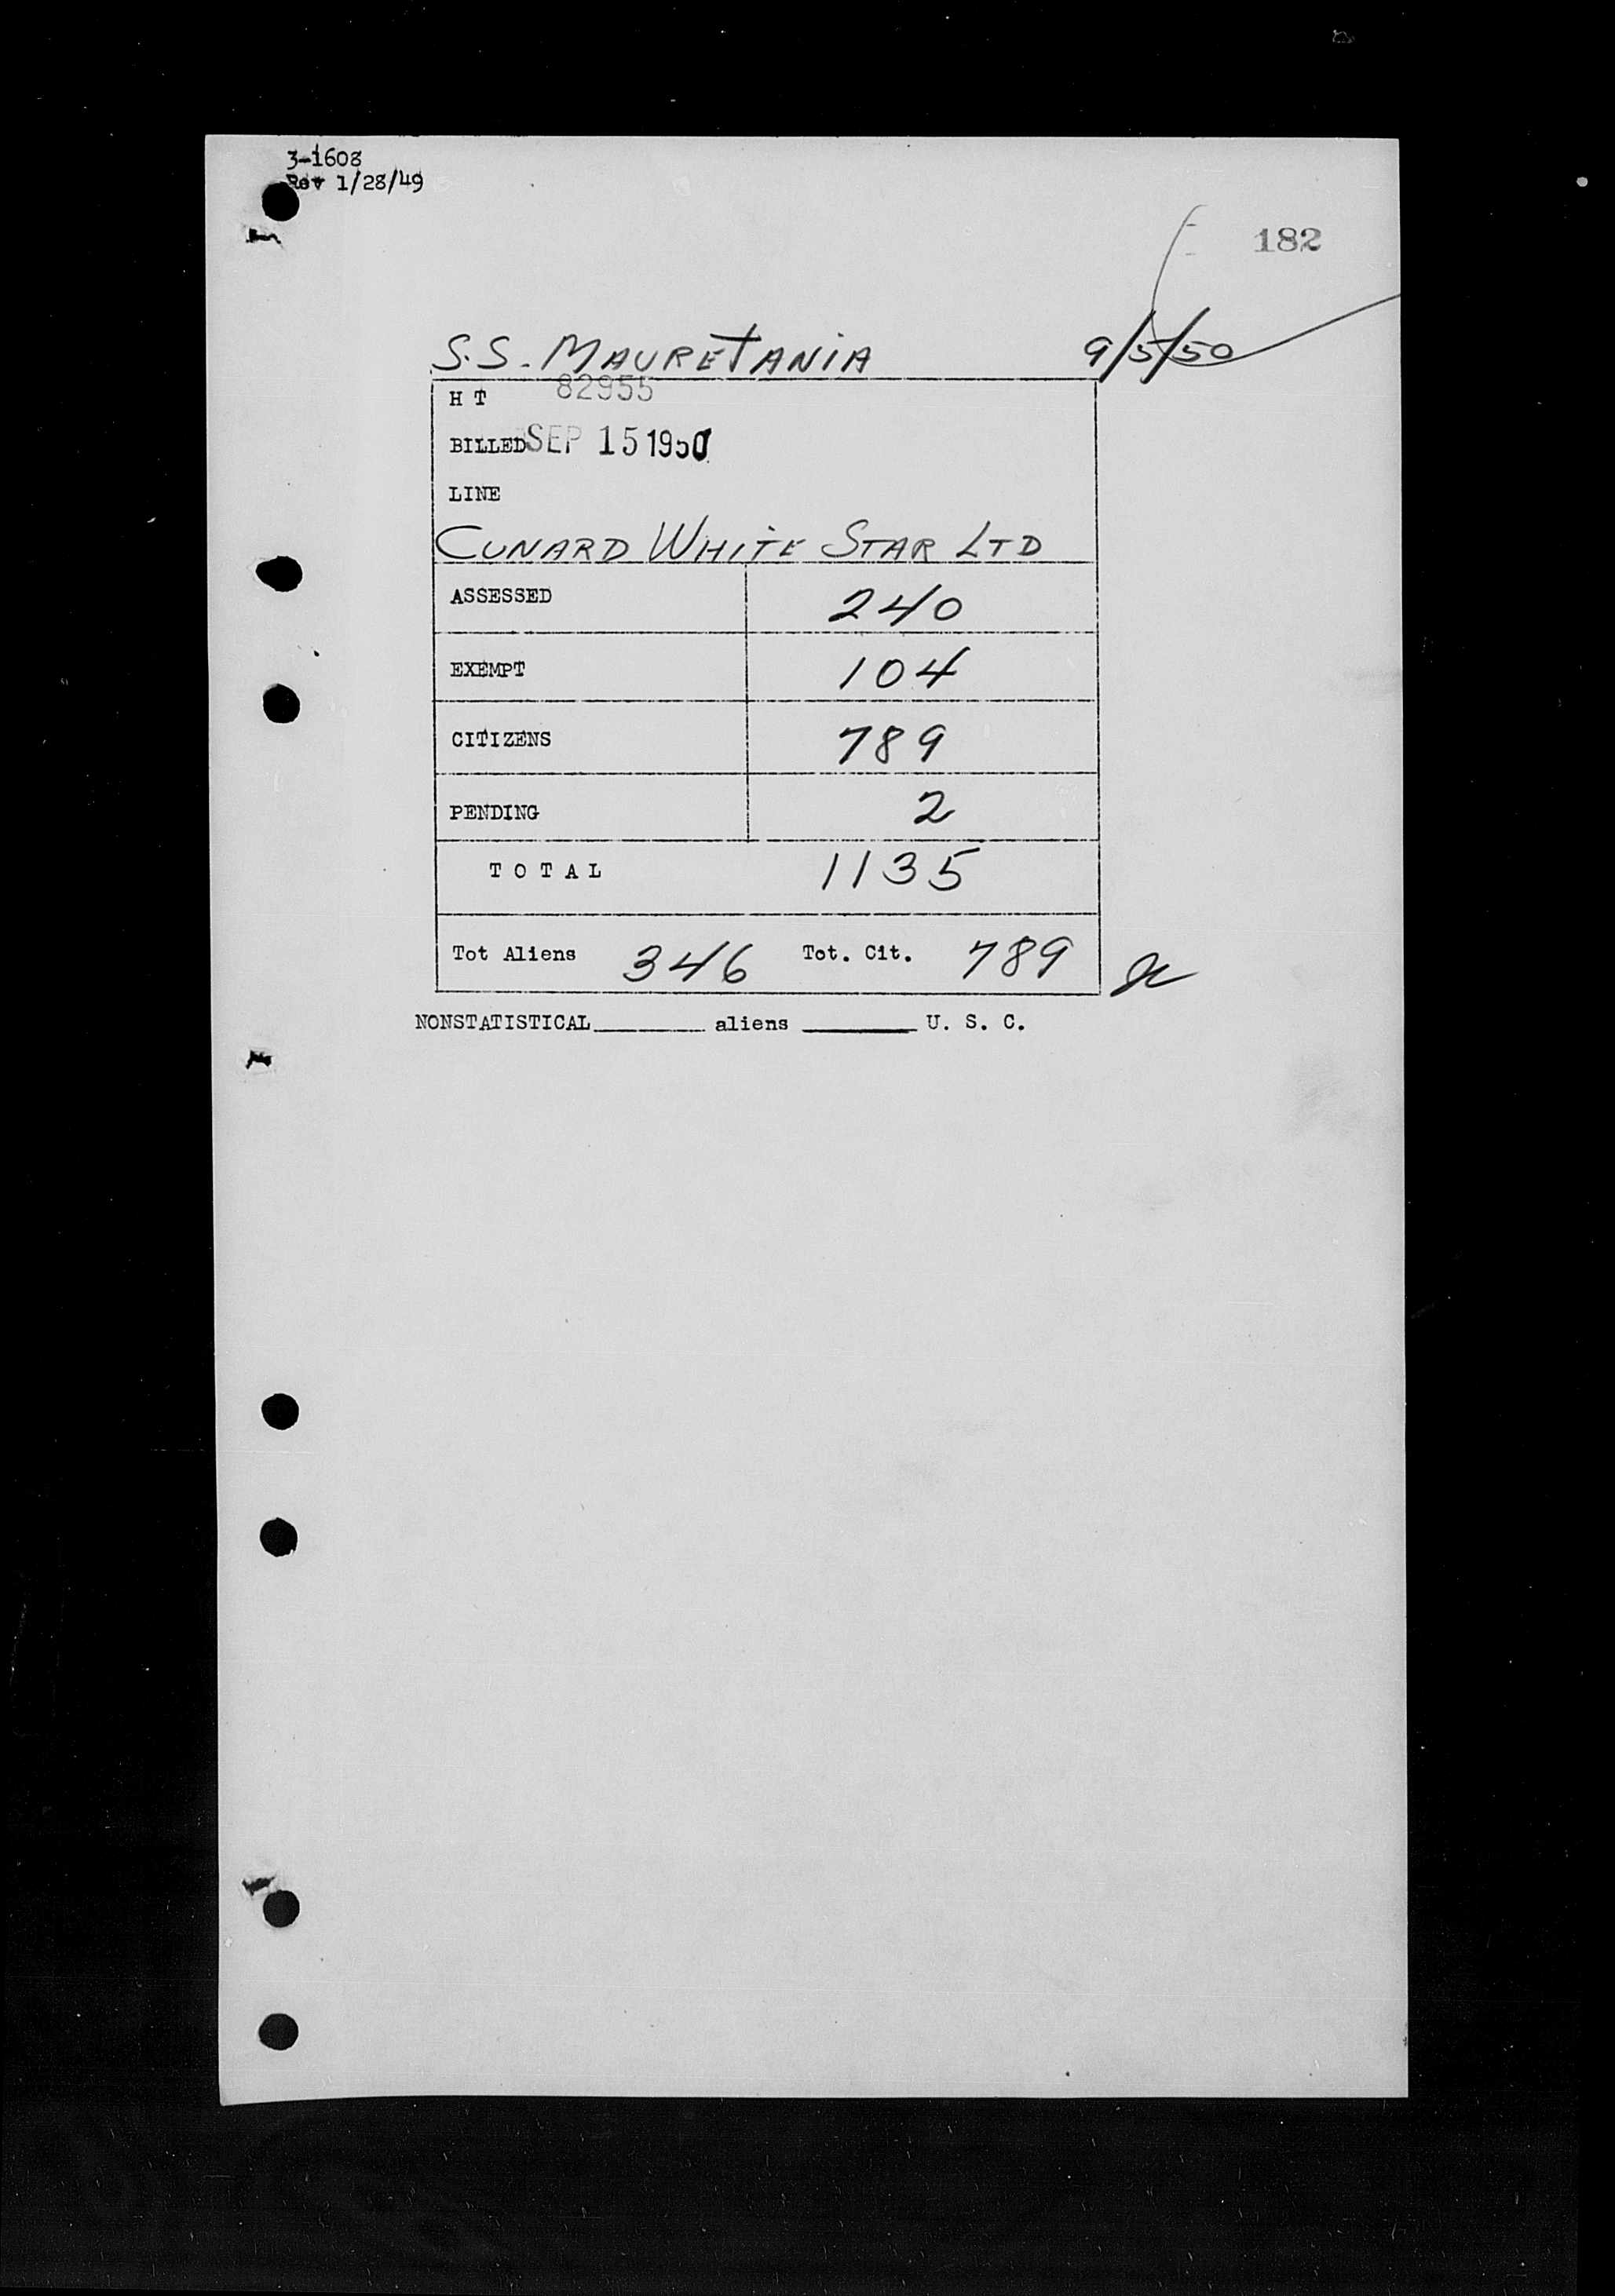 3-1608
Rev 1/28/49
182
S.S. MAURETANIA 9/5/50
H T 82955
BILLED SEP 15 1950
LINE
CUNARD WHITE STAR LTD
ASSESSED 240
EXEMPT 104
CITIZENS 789
PENDING 2
T O T A L 1135
Tot Aliens 346 Tot. Cit. 789
NONSTATISTICAL________ aliens ________ U. S. C.